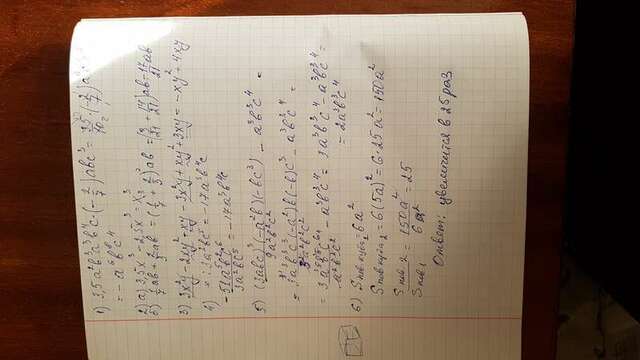 1) 3,5a²b³a³b⁴c·(-2/7)abc³ = 35/10·(-2/7)
= -a⁶b⁸c⁴
2) а) 3,5x³ - 2,5x³ = x³
б) 1/7ab + 2/3ab = (1/7 + 2/3)ab = (3/21 + 14/21)ab = 17/21ab
3) 3x²y - 2xy² + xy - 3x²y + xy² + 3xy = -xy² + 4xy
4) x · 3a²bc⁵ = -17a³b⁴c
-51a⁵b⁵c⁶/3a²bc⁵ = -17a³b⁴c
5) (3abc)³(-a²b)(-bc³)/9a²b²c² - a³b³c⁴ =
= 3³a³b³c³(-a²)b(-b)c³/3²a²b²c² - a³b³c⁴ =
= 3a⁵b⁵c⁶/a²b²c² - a³b³c⁴ = 3a³b³c⁴ - a³b³c⁴ =
= 2a³b³c⁴
6) Sпов куба₁ = 6a²
Sпов куба₂ = 6(5a)² = 6·25a² = 150a²
Sпов₂/Sпов₁ = 150a²/6a² = 25
Ответ: увеличится в 25 раз